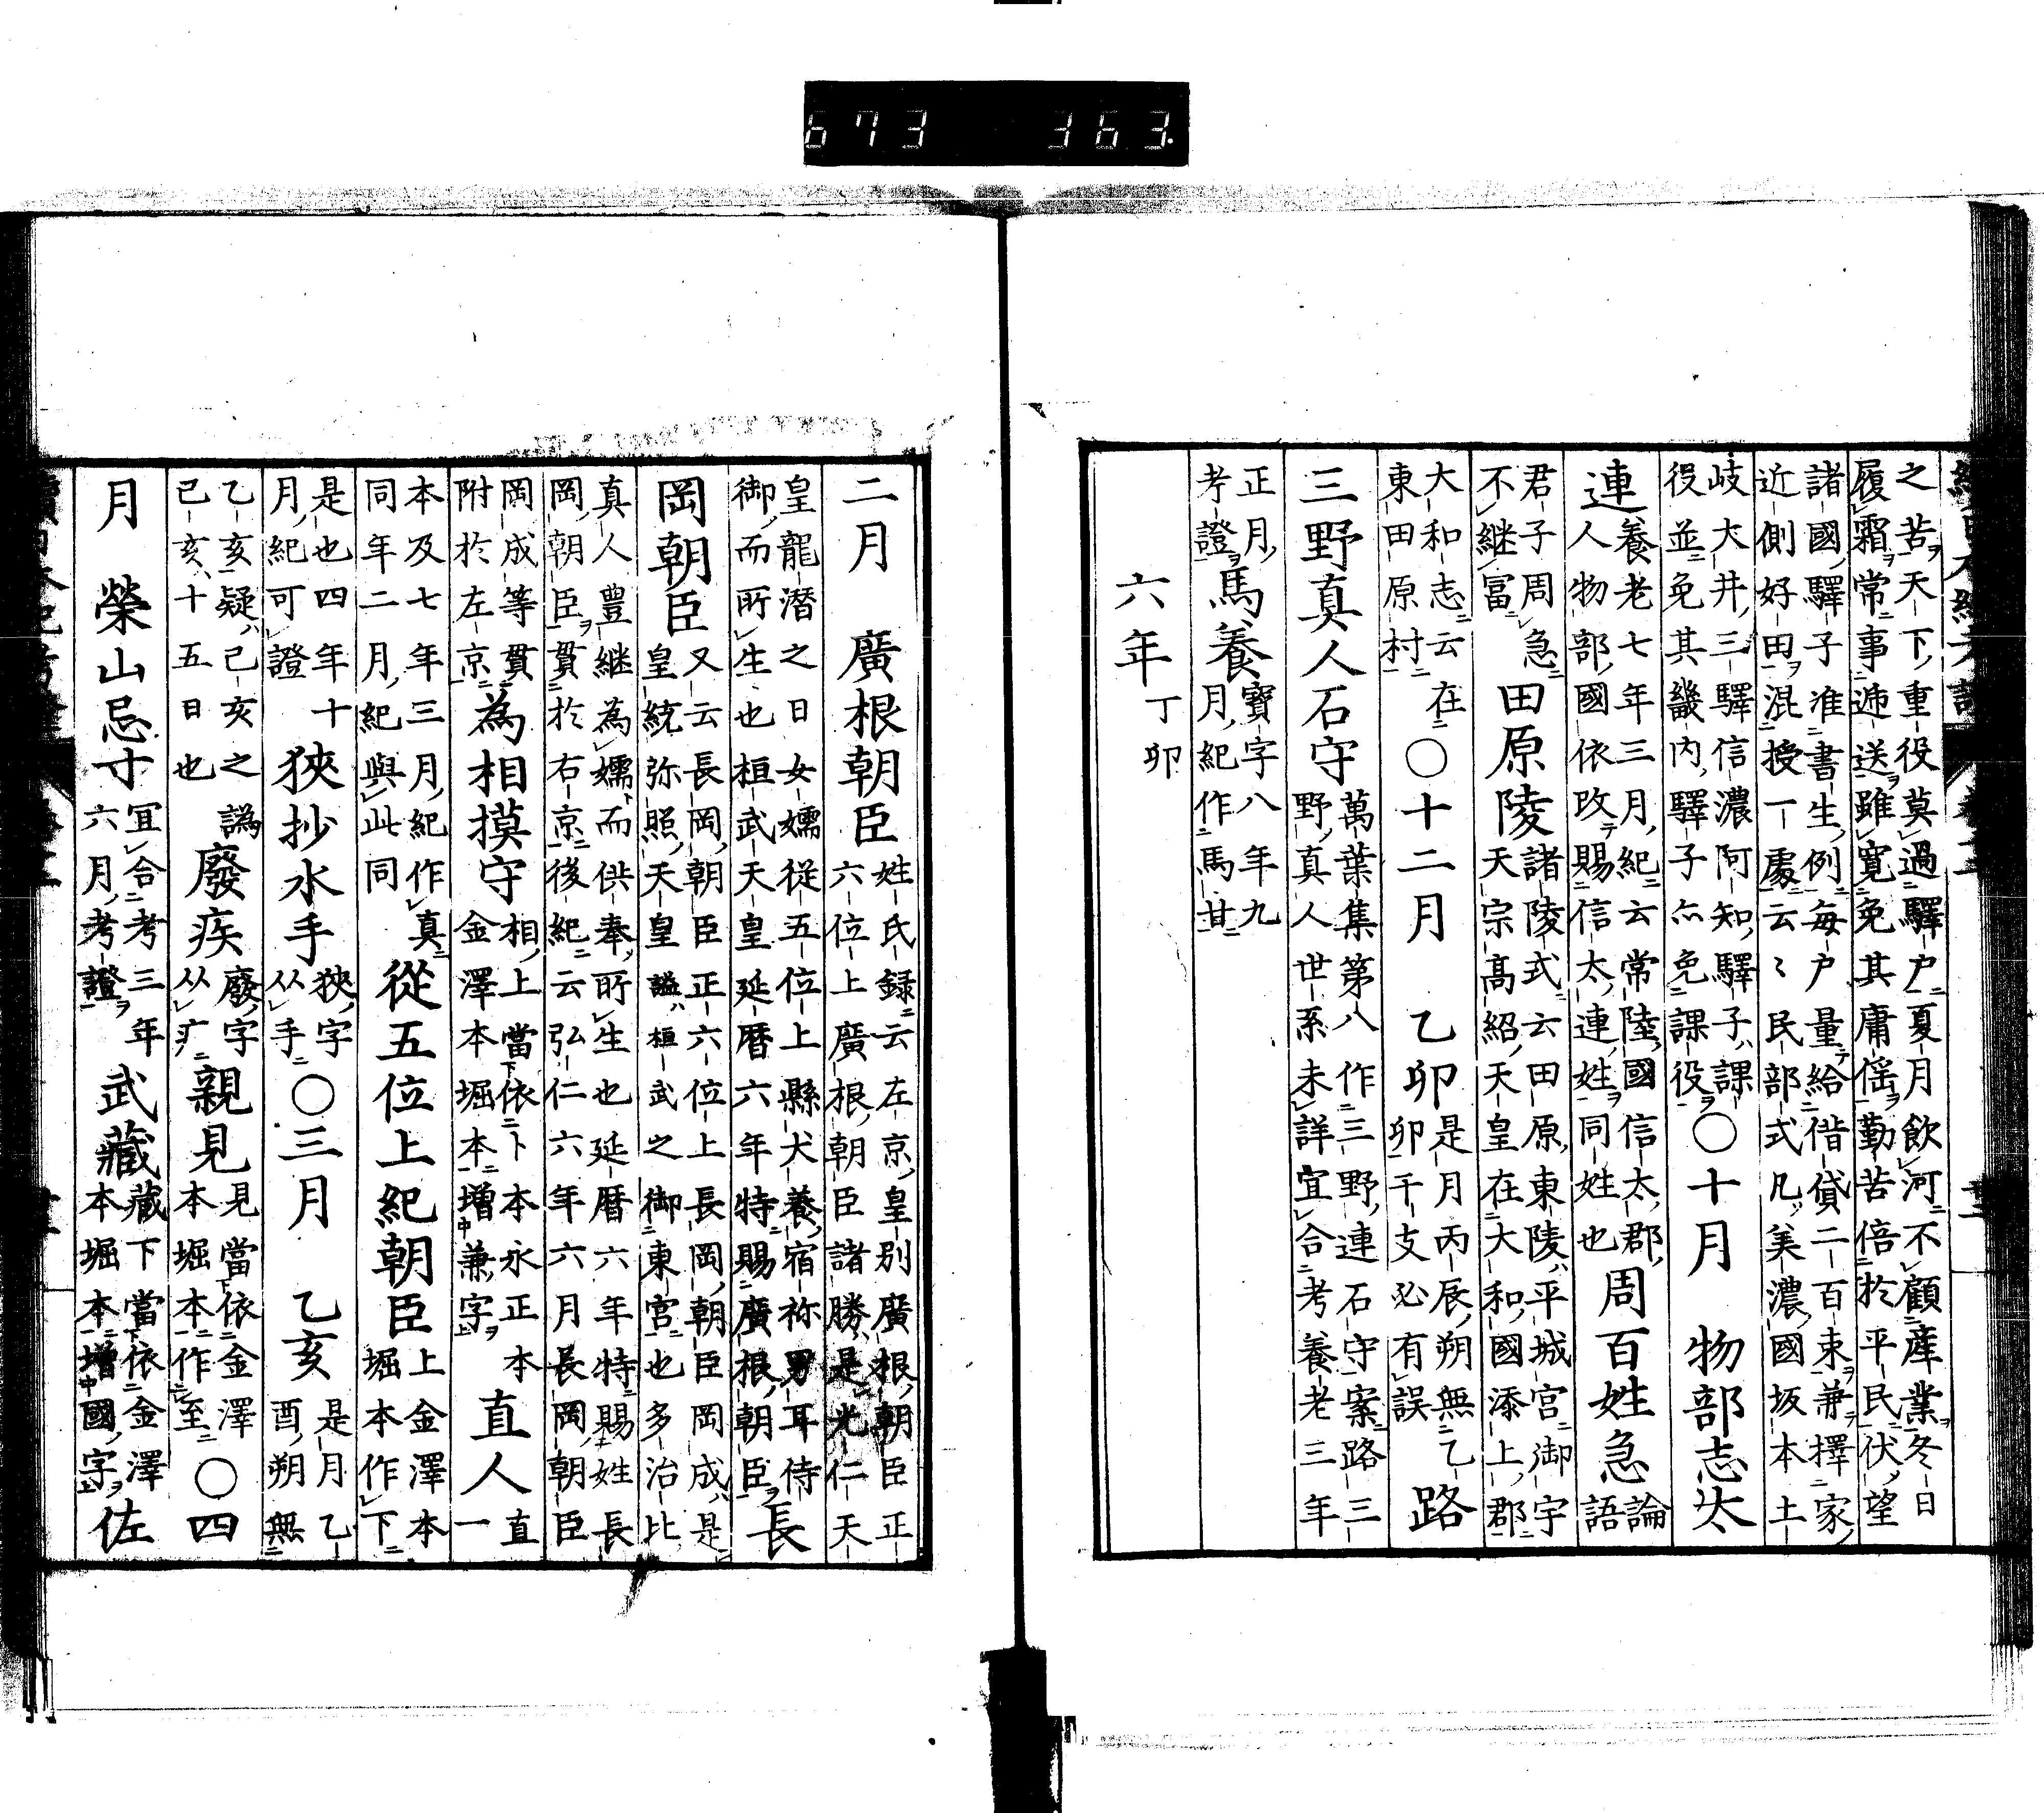 673 363
之苦天下重役莫過驛戸夏月飲河不顧産業冬日
履霜常事逓送雖寛免其庸徭勤苦倍於平民伏望
諸國驛子准書生例毎戸量給借貸二百束兼擇家
近側好田混授一處云〻民部式凡美濃國坂本土
岐大井三驛信濃阿知驛子課
役並免其畿内驛子亦免課役〇十月 物部志太
連養老七年三月紀云常陸國信太郡
人物部國依改賜信太連姓同姓也周百姓急論
語
君子周急
不継富田原陵諸陵式云田原東陵平城宮御宇
天宗髙紹天皇在大和國添上郡
大和志云在
東田原村〇十二月 乙卯是月丙辰朔無乙
卯干支必有誤路
三野真人石守萬葉集第八作三野連石守案路三
野真人世系未詳宜合考養老三年
正月
考證馬養寳字八年九
月紀作馬甘
六年丁卯
二月 廣根朝臣姓氏録云左京皇別廣根朝臣正
六位上廣根朝臣諸勝是光仁天
皇龍潜之日女嬬従五位上縣犬養宿祢男耳侍
御而所生也桓武天皇延暦六年特賜廣根朝臣長
岡朝臣又云長岡朝臣正六位上長岡朝臣岡成是
皇統弥照天皇謚桓武之御東宮也多治比
真人豊継為嬬而供奉所生也延暦六年特賜姓長
岡朝臣貫於右京後紀云弘仁六年六月長岡朝臣
岡成等貫
附於左京為相摸守相上當依卜本永正本
金澤本堀本増兼字直人直
一
本及七年三月紀作真
同年二月紀與此同從五位上紀朝臣上金澤本
堀本作下
是也四年十
月紀可證狹抄水手狹字
从手〇三月 乙亥是月乙
酉朔無
乙亥疑己亥之譌
己亥十五日也廢疾廢字
从疒親見見當依金澤
本堀本作至〇四
月 榮山忌寸宜合考三年
六月考證武藏藏下當依金澤
本堀本増國字佐